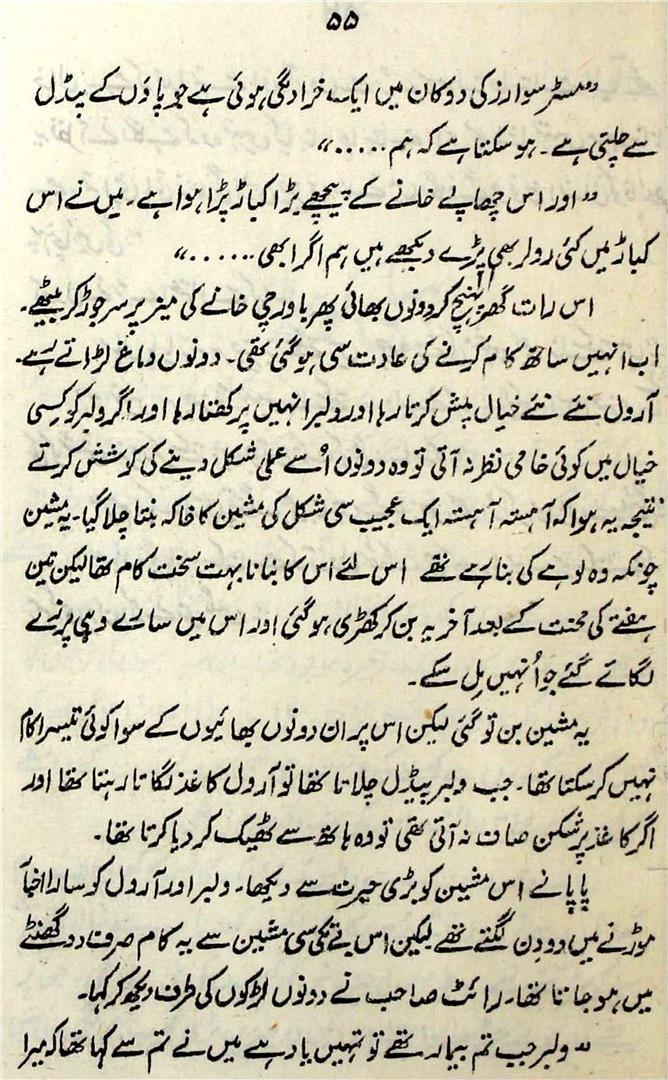 ۵۵
”مسٹر سوارز کی دوکان میں ایک خراد لگی ہوئی ہے جو پاؤں کے پیڈل
سے چلتی ہے۔ ہو سکتا ہے کہ ہم .....“
”اور اس چھاپے خانے کے پیچھے بڑا کباڑ پڑا ہوا ہے۔ میں نے اس
کباڑ میں کئی رولر بھی پڑے دیکھے ہیں ہم اگر ابھی ......“
اس رات گھر پہنچ کر دونوں بھائی پھر باورچی خانے کی میز پر سر جوڑ کر بیٹھے۔
اب انہیں ساتھ کام کرنے کی عادت سی ہو گئی تھی۔ دونوں دماغ لڑاتے رہے۔
آرول نئے نئے خیال پیش کرتا رہا اور ولبر انہیں پرکھتا رہا اور اگر ولبر کو کسی
خیال میں کوئی خامی نظر نہ آتی تو وہ دونوں اُسے عملی شکل دینے کی کوشش کرتے
نتیجہ یہ ہوا کہ آہستہ آہستہ ایک عجیب سی شکل کی مشین کا خاکہ بنتا چلا گیا۔ یہ مشین
چونکہ وہ لوہے کی بنا رہے تھے اس لئے اس کا بنانا بہت سخت کام تھا لیکن تین
ہفتے کی محنت کے بعد آخر یہ بن کر کھڑی ہو گئی اور اس میں سارے وہی پرزے
لگائے گئے جو اُنہیں مِل سکے۔
یہ مشین بن تو گئی لیکن اس پر ان دونوں بھائیوں کے سوا کوئی تیسرا کام
نہیں کر سکتا تھا۔ جب ولبر پیڈل چلاتا تھا تو آرول کاغذ لگاتا رہتا تھا اور
اگر کاغذ پر شکن صاف نہ آتی تھی تو وہ ہاتھ سے ٹھیک کر دیا کرتا تھا۔
پاپا نے اس مشین کو بڑی حیرت سے دیکھا۔ ولبر اور آرول کو سارا اخبار
موڑنے میں دو دِن لگتے تھے لیکن اس بے تکی سی مشین سے یہ کام صرف دو گھنٹے
میں ہو جاتا تھا۔ رائٹ صاحب نے دونوں لڑکوں کی طرف دیکھ کر کہا۔
”ولبر جب تم بیمار تھے تو تمہیں یاد ہے میں نے تم سے کہا تھا کہ میرا